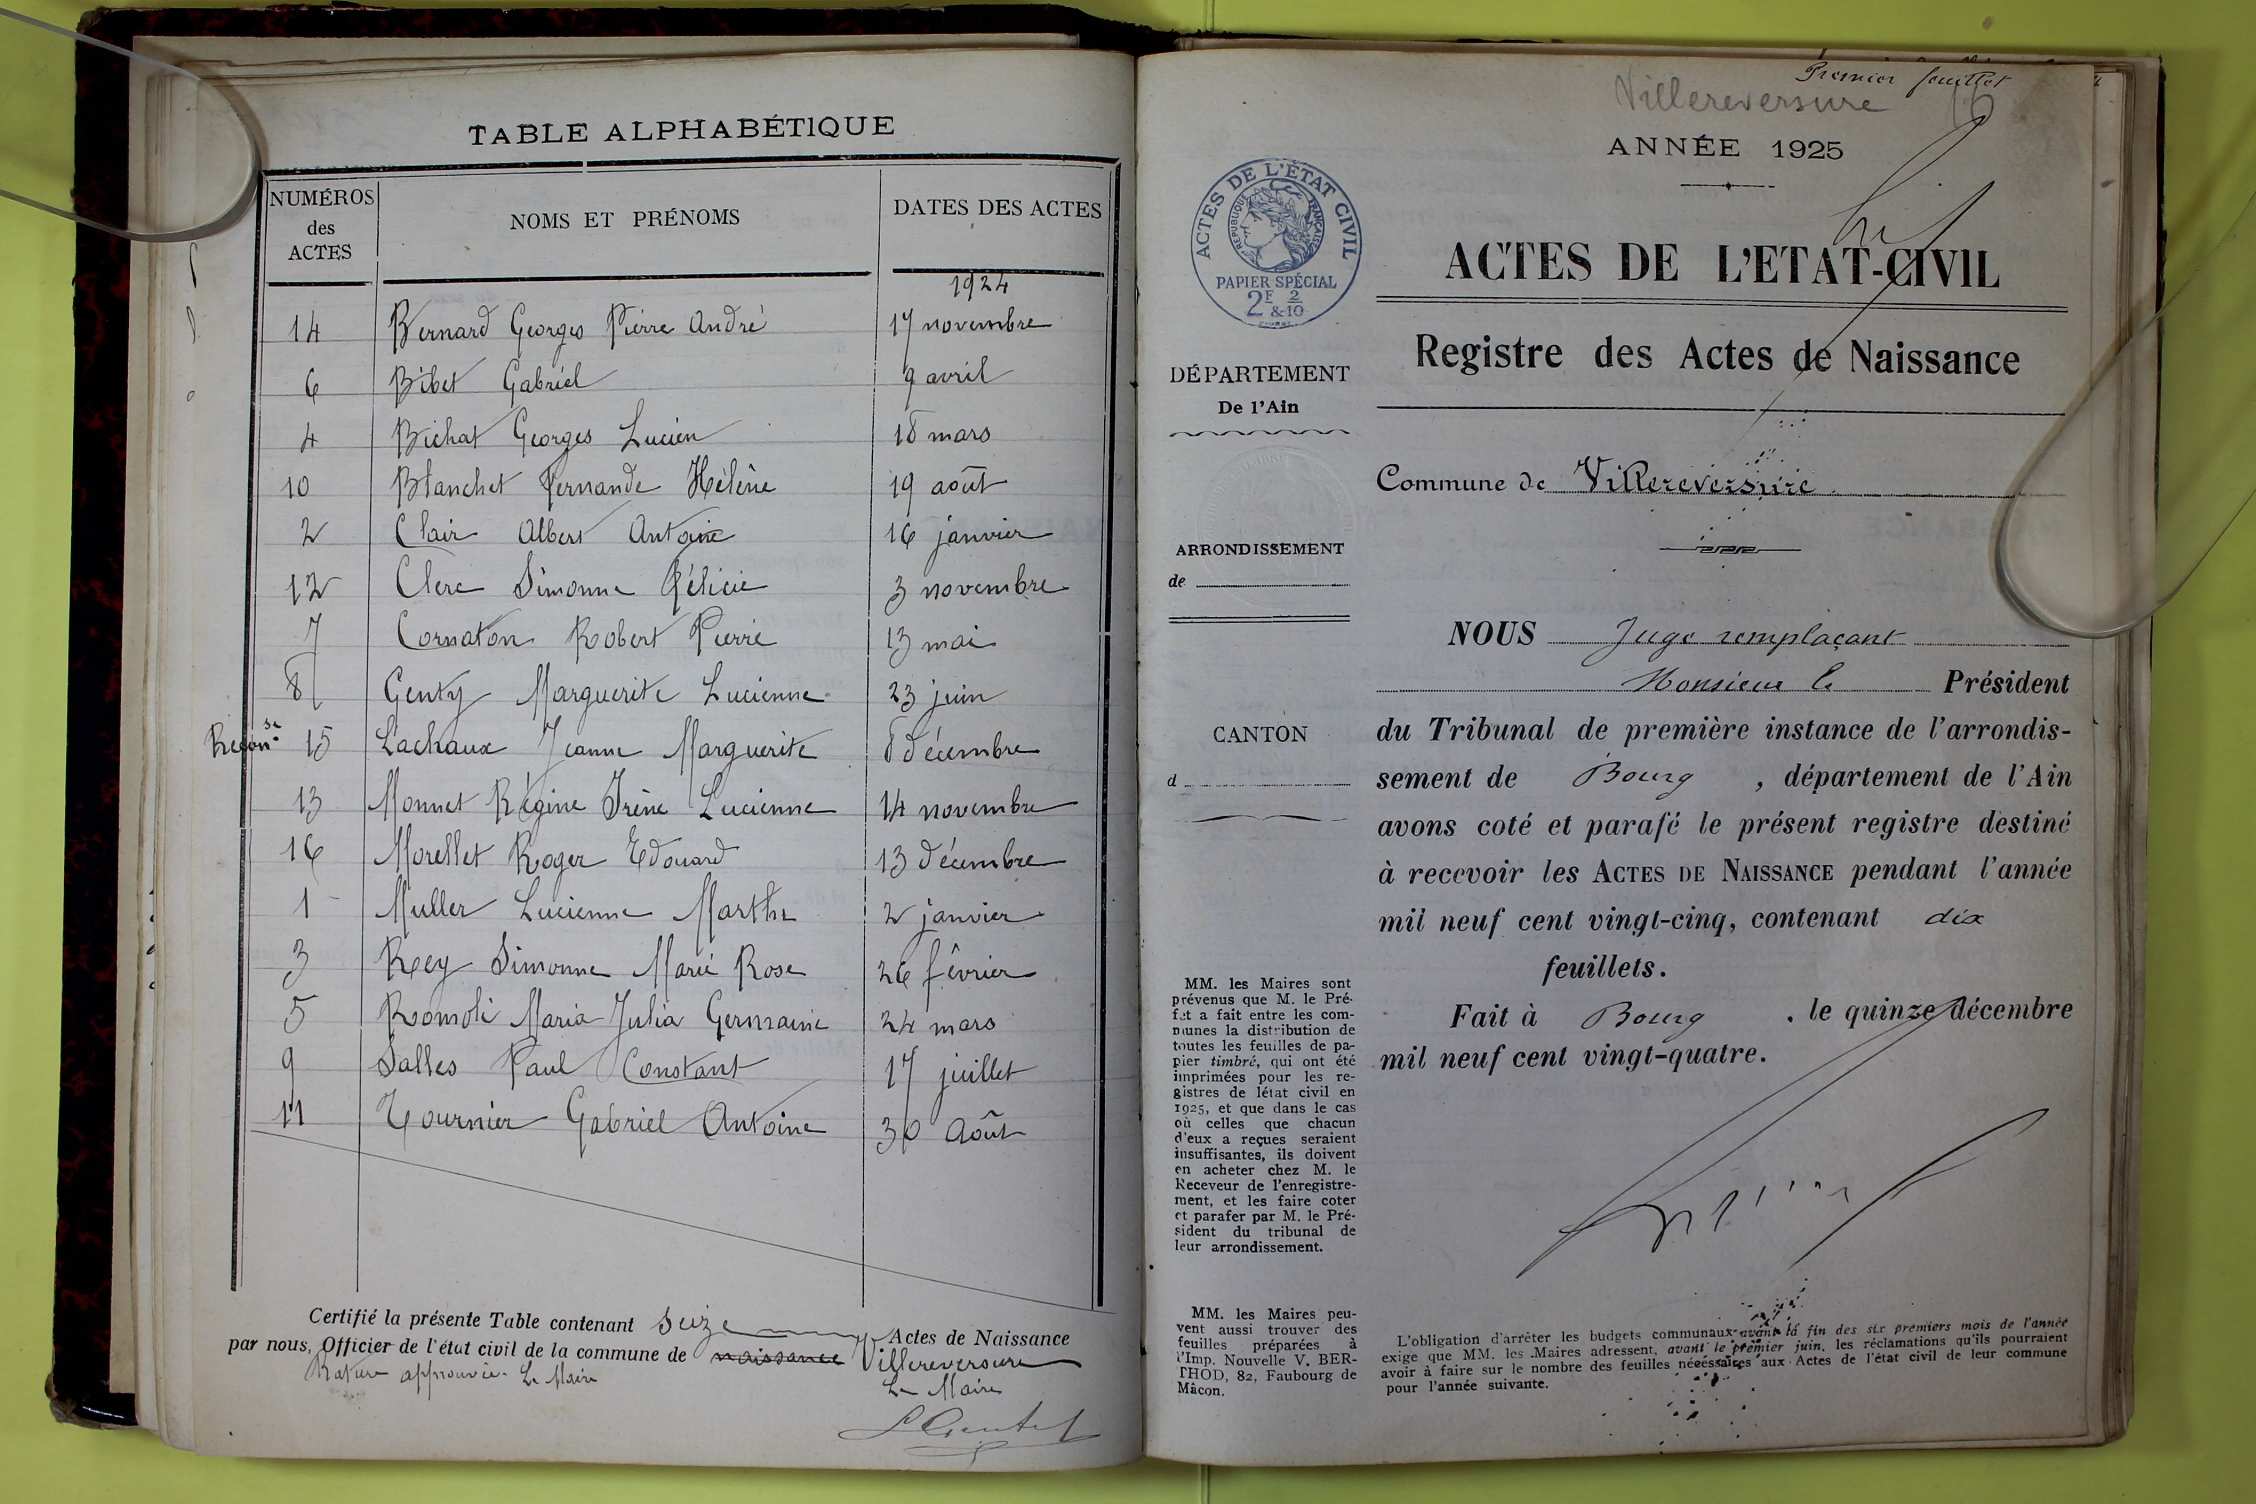 TABLE ALPHABÉTIQUE
NUMÉROS des ACTES NOMS ET PRÉNOMS DATES DES ACTES
1924
14 Bernard Georges Pierre André 17 novembre
6 Bibet Gabriel 9 avril
4 Bichat Georges Lucien 18 mars
10 Blanchet Fernande Hélène 19 août
2 Clair Albert Antoine 16 janvier
12 Clerc Simonne Félicie 3 novembre
7 Cornaton Robert Pierre 13 mai
8 Genty Marguerite Lucienne 23 juin
Recon.se 15 Lachaux Jeanne Marguerite 8 décembre
13 Monnet Régine Irène Lucienne 14 novembre
16 Morellet Roger Edouard 13 décembre
1 Muller Lucienne Marthe 2 janvier
3 Rey Simonne Marie Rose 26 février
5 Romoli Maria Julia Germaine 24 mars
9 Salles Paul Constant 17 juillet
11 Tournier Gabriel Antoine 30 Août
Certifié la présente Table contenant seize Actes de Naissance
par nous, Officier de l'état civil de la commune de naissance Villereversure
Rature approuvée. Le Maire
Le Maire
Premier feuillet
Villereversure
ANNÉE 1925
ACTES DE L'ÉTAT CIVIL
RÉPUBLIQUE FRANÇAISE
PAPIER SPÉCIAL
2F 2 & 10
ACTES DE L'ETAT-CIVIL
Registre des Actes de Naissance
DÉPARTEMENT
De l'Ain
Commune de Villereversure
ARRONDISSEMENT
de
NOUS Juge remplaçant
Monsieur le Président
CANTON
d
du Tribunal de première instance de l'arrondis-
sement de Bourg, département de l'Ain
avons coté et parafé le présent registre destiné
à recevoir les ACTES DE NAISSANCE pendant l'année
mil neuf cent vingt-cinq, contenant dix
feuillets.
Fait à Bourg, le quinze décembre
mil neuf cent vingt-quatre.
MM. les Maires sont
prévenus que M. le Pré-
fet a fait entre les com-
munes la distribution de
toutes les feuilles de pa-
pier timbré, qui ont été
imprimées pour les re-
gistres de létat civil en
1925, et que dans le cas
où celles que chacun
d'eux a reçues seraient
insuffisantes, ils doivent
en acheter chez M. le
Receveur de l'enregistre-
ment, et les faire coter
et parafer par M. le Pré-
sident du tribunal de
leur arrondissement.
MM. les Maires peu-
vent aussi trouver des
feuilles préparées à
l'Imp. Nouvelle V. BER-
THOD, 82, Faubourg de
Mâcon.
L'obligation d'arrêter les budgets communaux avant la fin des six premiers mois de l'année
exige que MM. les Maires adressent, avant le premier juin, les réclamations qu'ils pourraient
avoir à faire sur le nombre des feuilles nécessaires aux Actes de l'état civil de leur commune
pour l'année suivante.